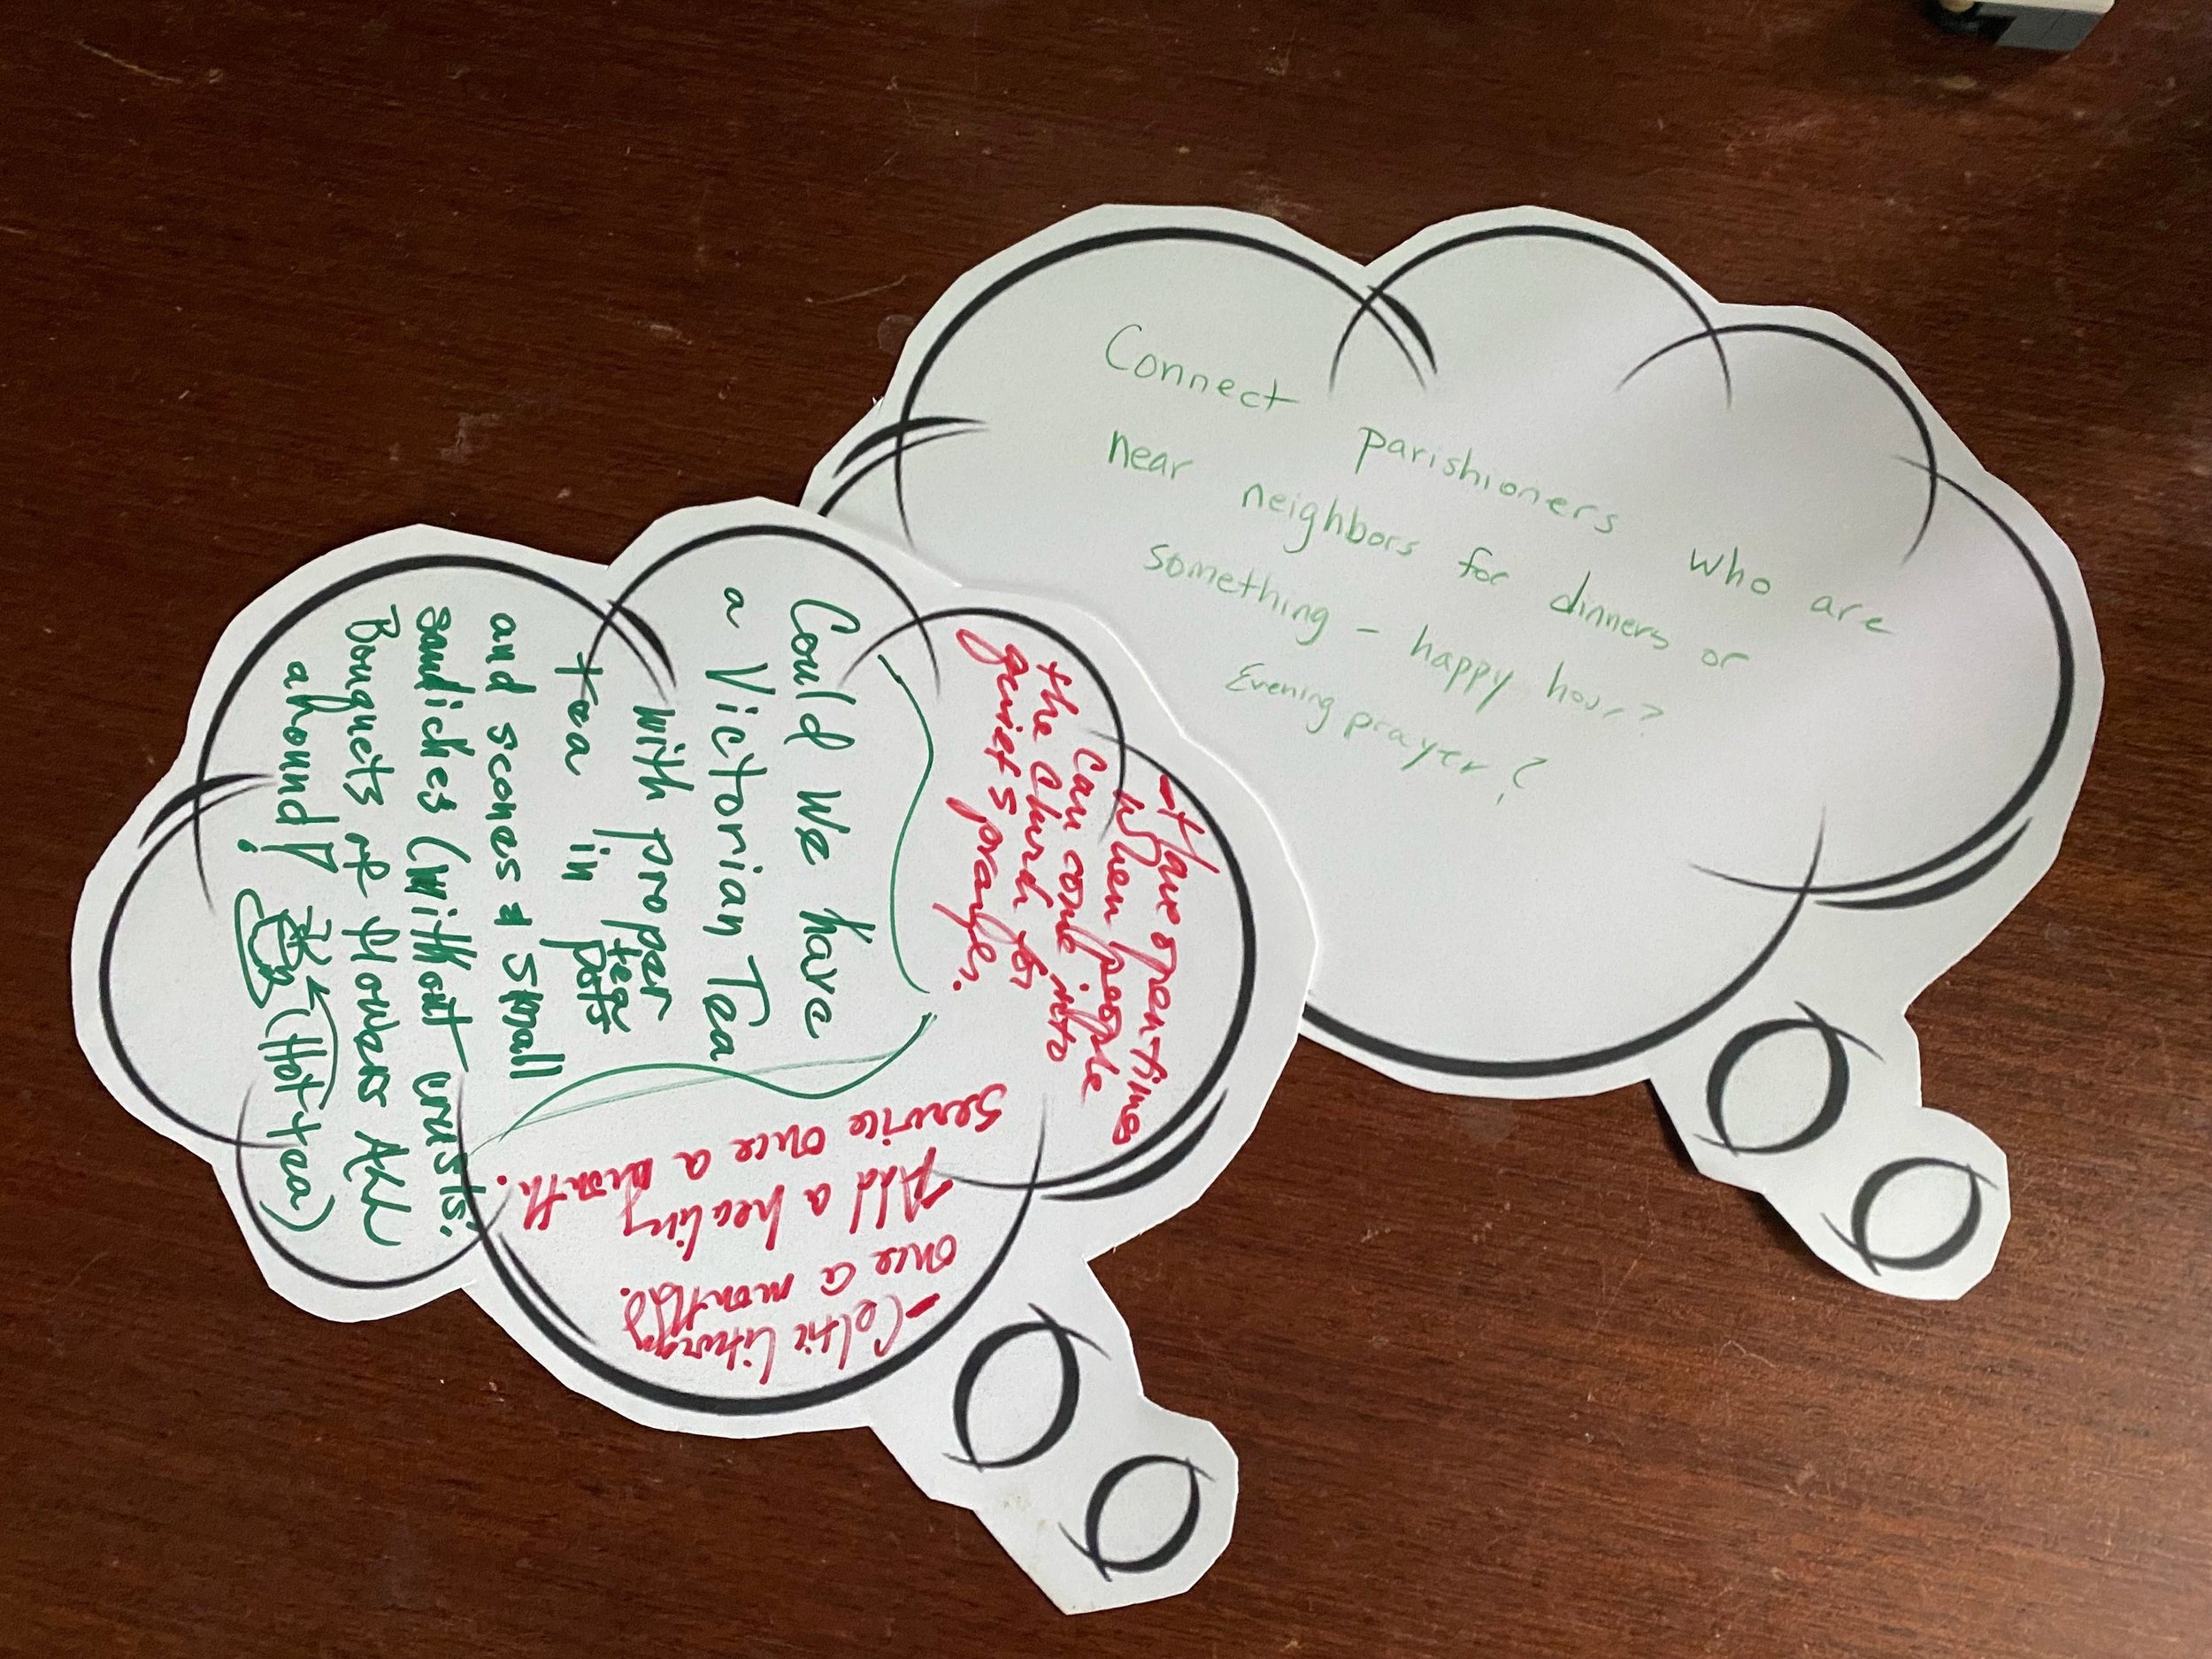 Connect parishioners who are
near neighbors for dinners or
something - happy hour?
Evening prayer?
- Have open times
when people
can come into
the church for
quiet & prayer.
Could we have
a Victorian Tea
with proper
tea in tea pots
and scones & small
sandiches (without crusts.
Bouquets of flowers All
around!
(Hot tea)
- Celtic liturgy
once a month.
Add a healing
service once a month.